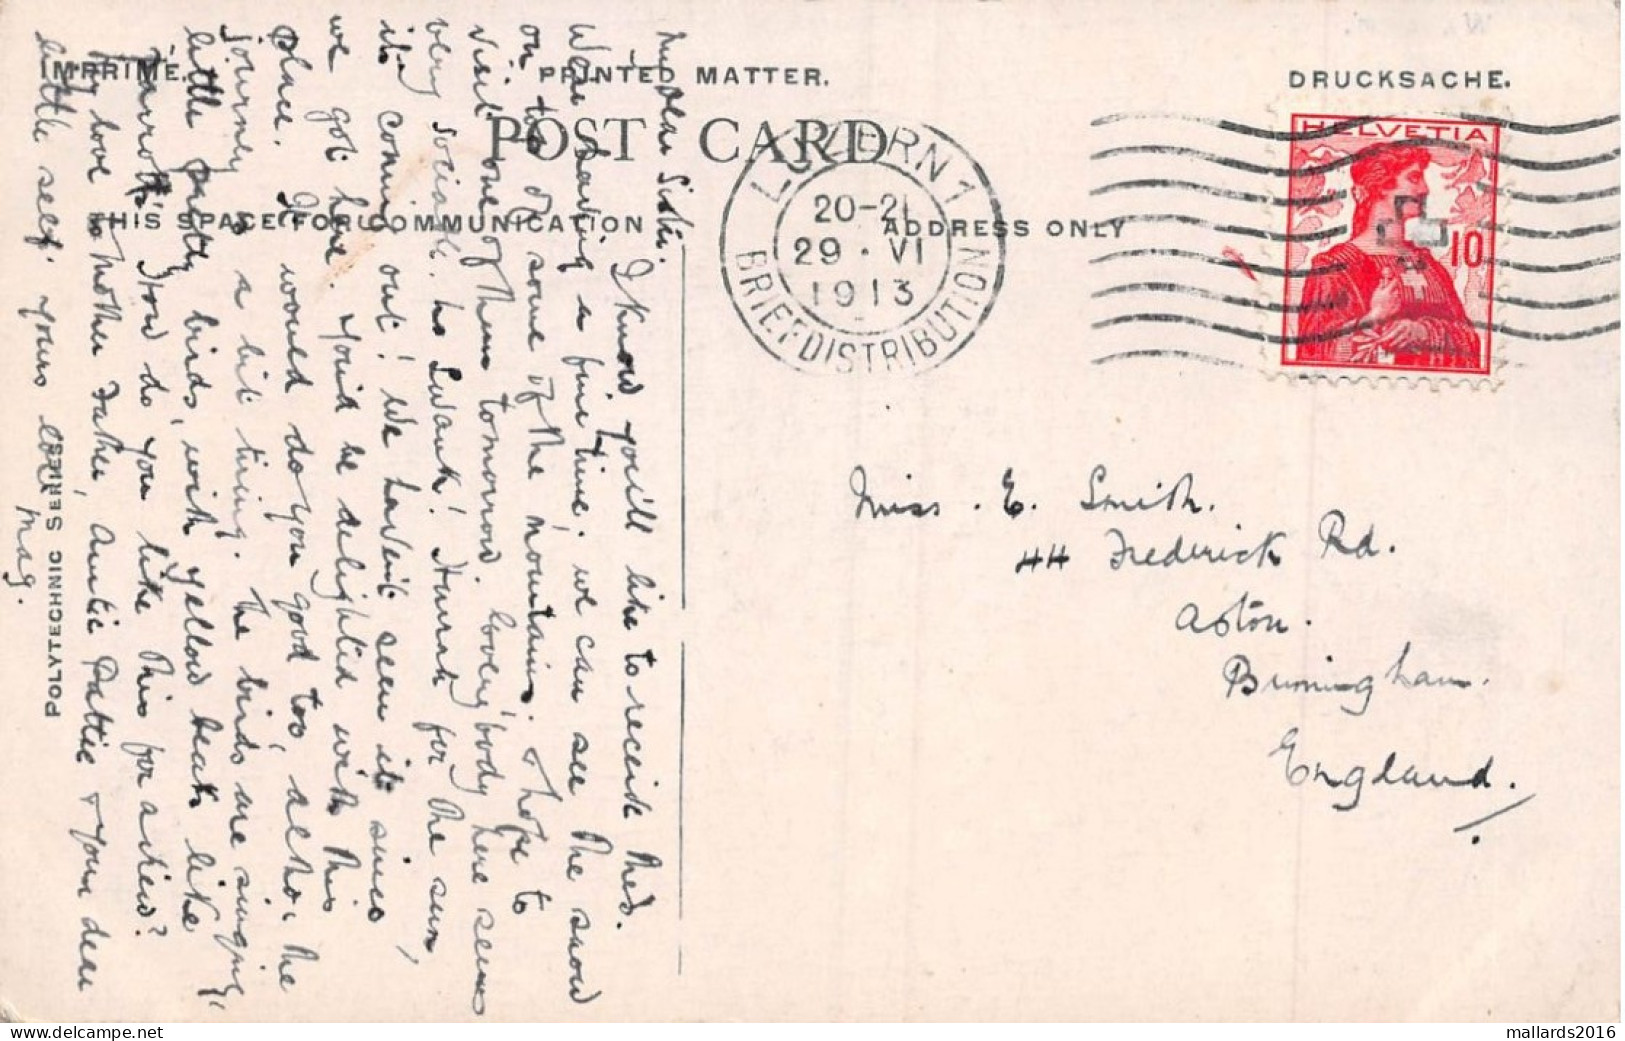 IMPRIMÉ.
PRINTED MATTER.
DRUCKSACHE.
POST CARD
THIS SPACE FOR COMMUNICATION
ADDRESS ONLY
LUZERN 1
20-21
29 · VI
1913
BRIEFDISTRIBUTION
HELVETIA
10
My dear Siski.
I know you'll like to receive this.
We're having a fine time. we can see the snow
on top of some of the mountains. I hope to
visit one of them tomorrow. Every'body here seems
very sociable. no Swank! Hurrah for the sun,
it's coming out! We haven't seen it since
we got here. You'd be delighted with this
place. It would do you good too, altho' the
journey is a bit tiring. The birds are singing,
little pretty birds, with yellow beaks like
Parrots'. How do you like this for a view?
My love to Mother Father, Auntie Pattie & your dear
little self. Yours Mag.
POLYTECHNIC SERIES
Miss. E. Smith.
44 Frederick Rd.
Aston.
Birmingham.
England.
mallards2016